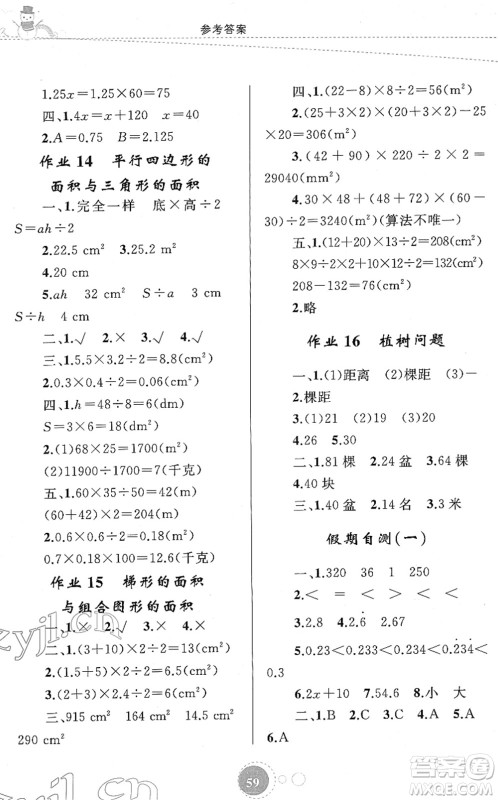 参考答案
1.25x=1.25×60=75
四、1.4x=x+120 x=40
2.A=0.75 B=2.125
作业14 平行四边形的
面积与三角形的面积
一、1.完全一样 底×高÷2
S=ah÷2
2.22.5 cm² 3.25.2 m²
4.20 cm
5.ah 32 cm² S÷a 3 cm
S÷h 4 cm
二、1.√ 2.× 3.× 4.√
三、1.5.5×3.2÷2=8.8(cm²)
2.0.3×0.4÷2=0.06(cm²)
四、1.h=48÷8=6(m)
S=3×6=18(m²)
2.(1)68×25=1700(m²)
(2)11900÷1700=7(千克)
五、1.60×35÷30=70(dm)
(60+42)×2=204(dm)
2.0.6×0.6÷2=0.18(m²)
0.7×0.18×100=12.6(千克)
作业15 梯形的面积
与组合图形的面积
一、1.× 2.× 3.√ 4.×
二、1.(3+10)×2÷2=13(cm²)
2.(1.5+5)×2÷2=6.5(cm²)
3.(2+4)×2÷2=6(cm²)
三、915 cm² 164 cm² 14.5 cm²
290 cm²
四、1.(22-8)×8÷2=56(m²)
2.(25+3)×22÷2-2×2÷
2=306(m²)
3.(42+90)×220÷2×2=
29040(m²)
4.30×48+(48+72)×(60-
30)÷2=3240(m²)(算法不唯一)
五、1.(12+20)×13÷2=208(m²)
8×9÷2+12×16÷2=132(m²)
208-132=76(m²)
2.略
作业16 植树问题
一、1.(1)距离 (2)棵距 (3)-
2.棵距
3.(1)21 (2)19 (3)20
4.26 5.30
二、1.81棵 2.24盆 3.60棵
4.40块
三、1.40盆 2.14名 3.3米
假期自测(一)
一、1.320 36 1 250
2.< = > < > >
3.68 4.2.6̇ 2.67
5.0.23<0.233<0.234<0.2̇34̇<
0.3
6.2x+10 7.54.6 8.小 大
二、1.B 2.C 3.C 4.A 5.A
6.A
59